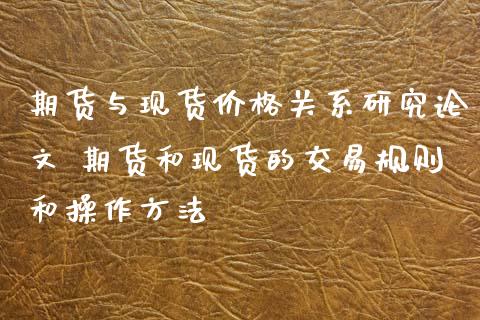 期货与现货价格关系研究论
文 期货和现货的交易规则
和操作方法